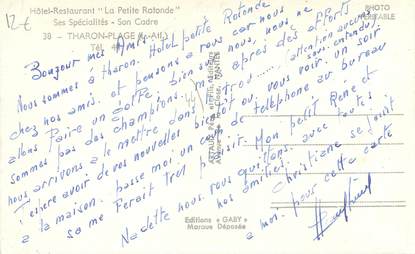 12€
Hôtel-Restaurant "La Petite Rotonde"
Ses Spécialités - Son Cadre
38 - THARON-PLAGE (L.-Atl.)
Tél.
PHOTO VÉRITABLE
Bonjour mes Amis
Nous sommes à tharon. Hotel petite Rotonde
chez nos amis. et pensons a vous car nous
allons faire un golfe, bien sur nous, nous ne
sommes pas des champions, mais après des efforts
nous arrivons a le mettre dans le trou
J'espère avoir de vos nouvelles ou vous voir un soir
a la maison. passe moi un coup de telephone au bureau
sa me ferait trot plaisir. Mon petit René et
Nadette nous vous quittons, avec toutes
nos amitiés. Christiane se joint
a moi pour cette carte
Editions "GABY"
Marque Déposée